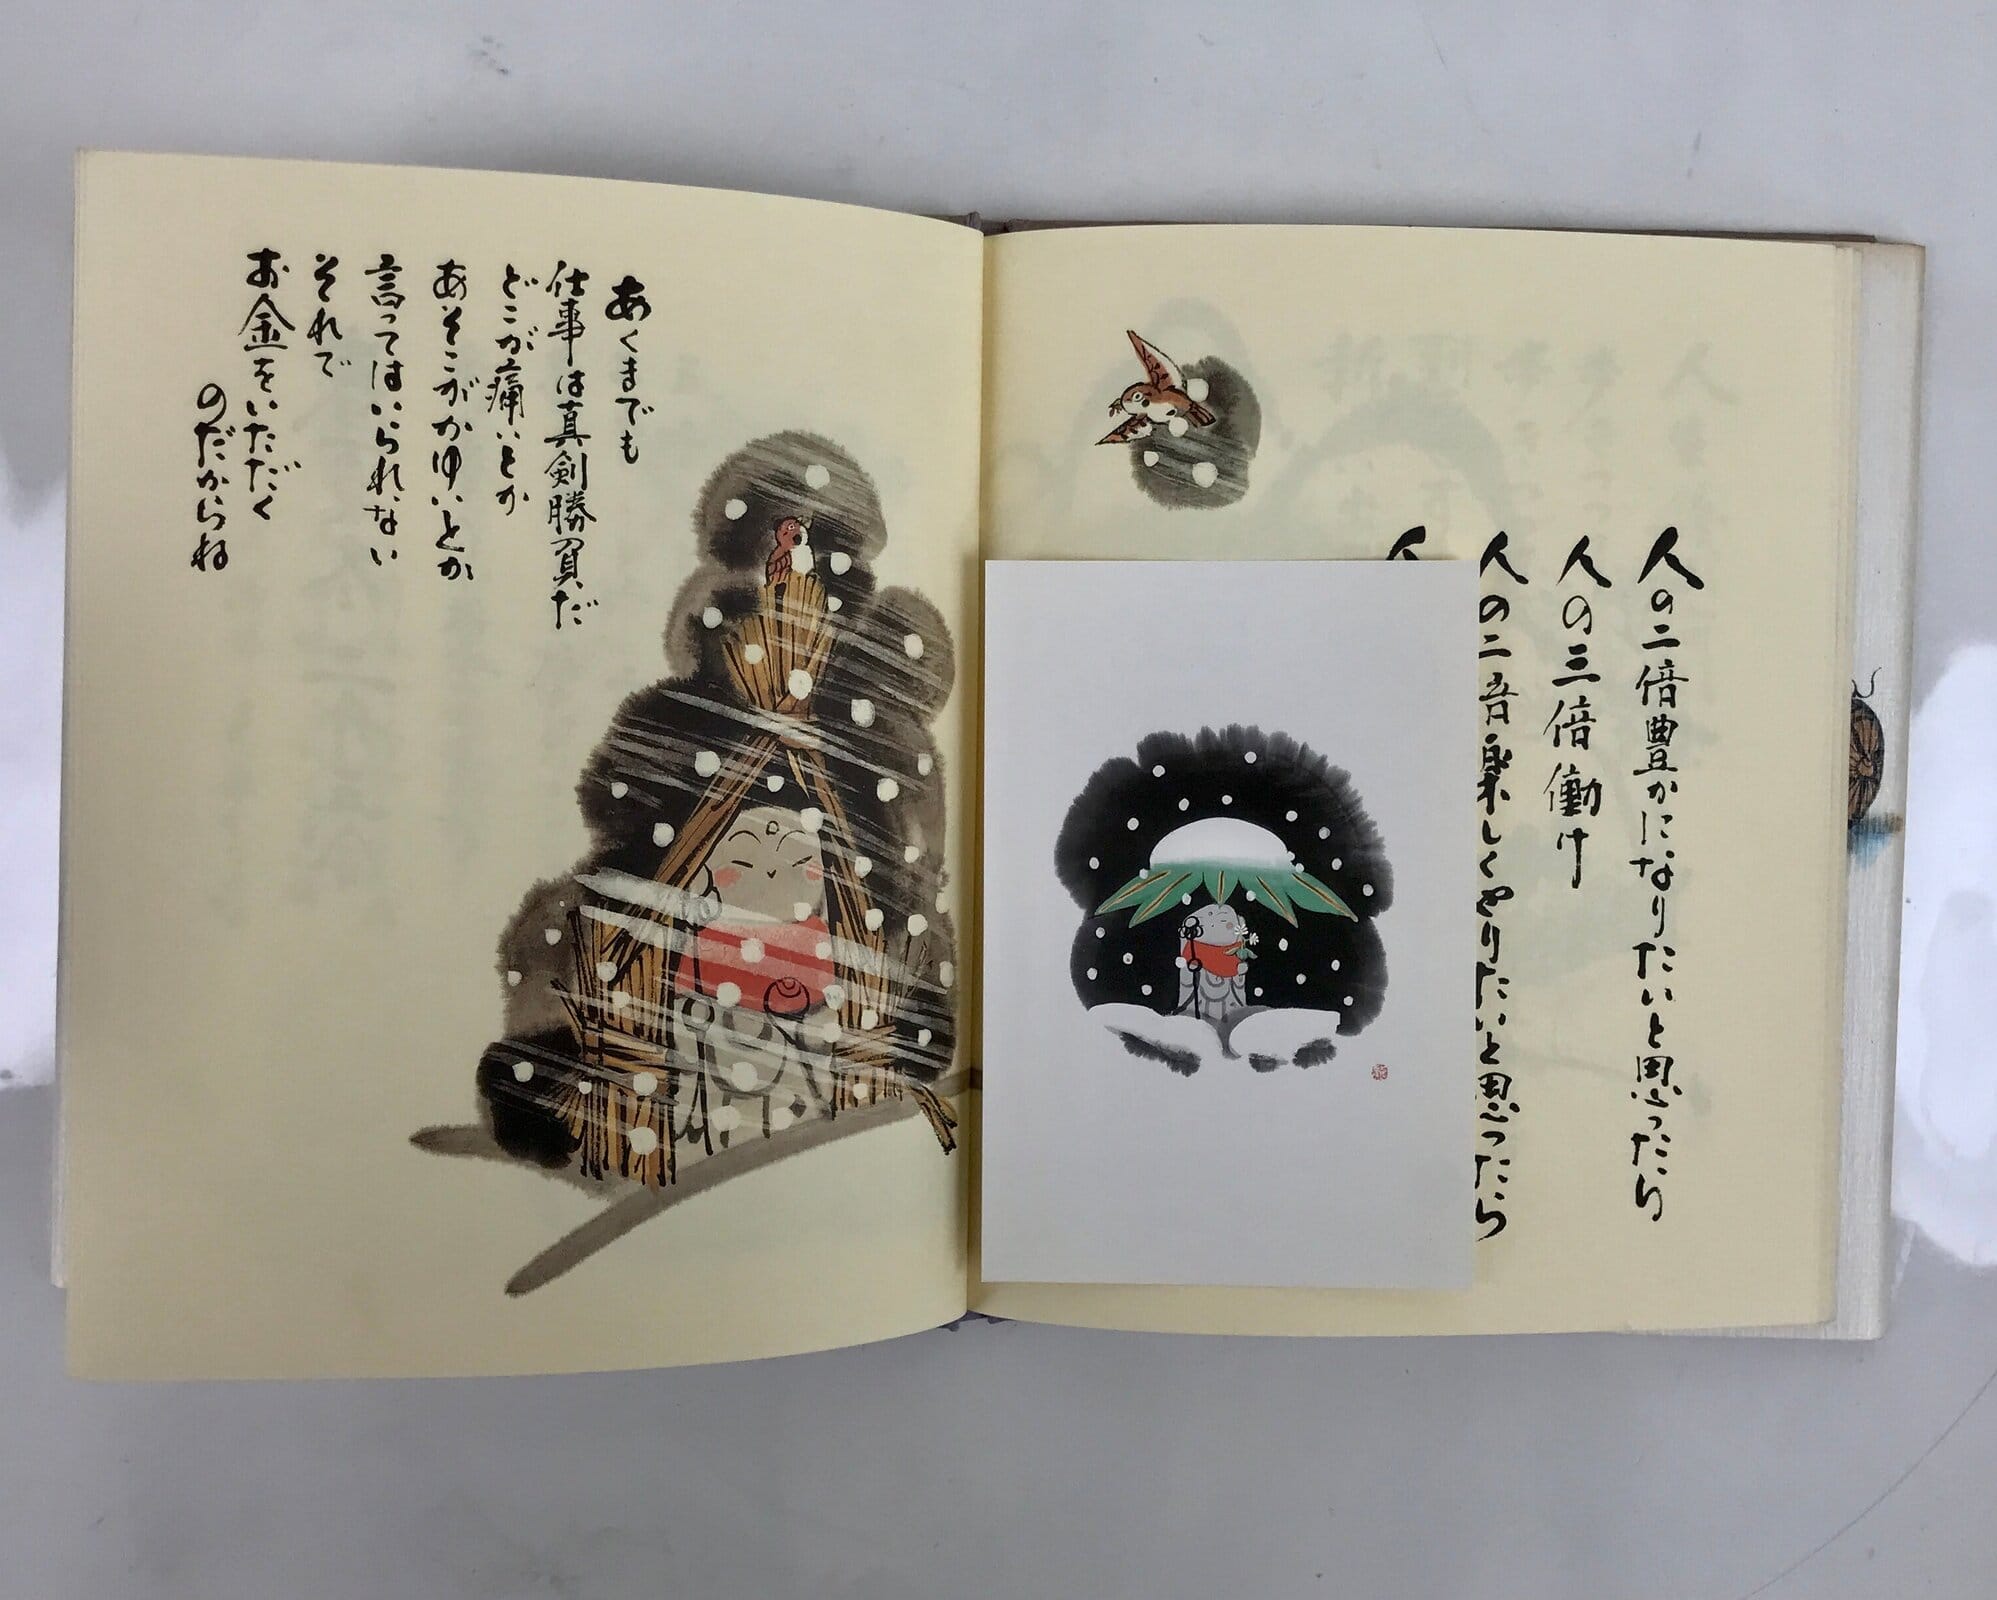 人の二倍豊かになりたいと思ったら
人の三倍働け
人の二倍楽しくやりたいと思ったら
人
あくまでも
仕事は真剣勝負だ
どこが痛いとか
あそこがかゆいとか
言ってはいられない
それで
お金をいただく
のだからね